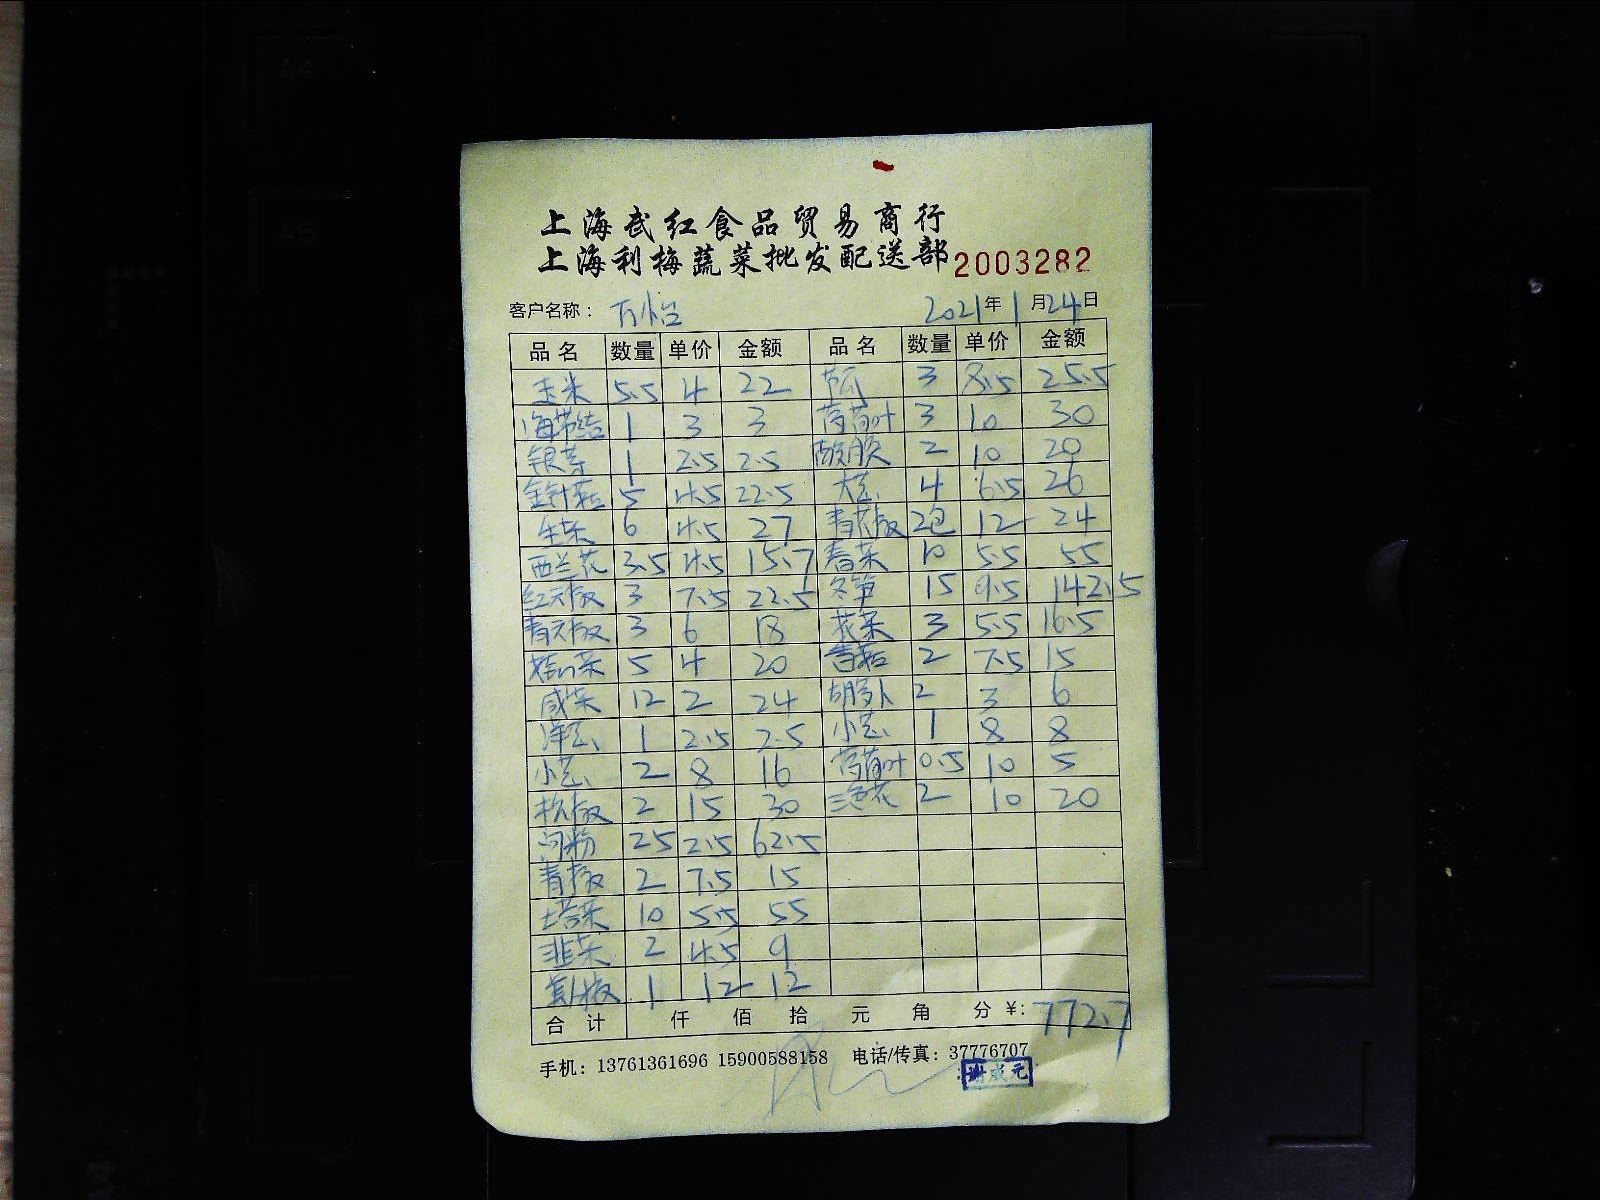 上海武红食品贸易商行
上海利梅蔬菜批发配送部 2003282
客户名称： 万怡 2021年1月24日
品名 数量 单价 金额 品名 数量 单价 金额
玉米 5.5 4 22 3 8.5 25.5
海带结 1 3 3 莴荀叶 3 10 30
银芽 1 2.5 2.5 2 10 20
金针菇 5 4.5 22.5 大芸 4 6.5 26
生菜 6 4.5 27 2包 12 24
西兰花 3.5 4.5 15.7 春菜 10 5.5 55
红尖椒 3 7.5 22.5 冬笋 15 9.5 142.5
青尖椒 3 6 18 花菜 3 5.5 16.5
5 4 20 香菇 2 7.5 15
咸菜 12 2 24 胡萝卜 2 3 6
洋芸 1 2.5 2.5 小芸 1 8 8
小芸 2 8 16 莴荀叶 0.5 10 5
2 15 30 三色花 2 10 20
河粉 25 2.5 62.5
青椒 2 7.5 15
塔菜 10 5.5 55
韭菜 2 4.5 9
1 12 12
合计 仟 佰 拾 元 角 分 ¥: 772.7
手机：13761361696 15900588158 电话/传真：37776707
谢成元